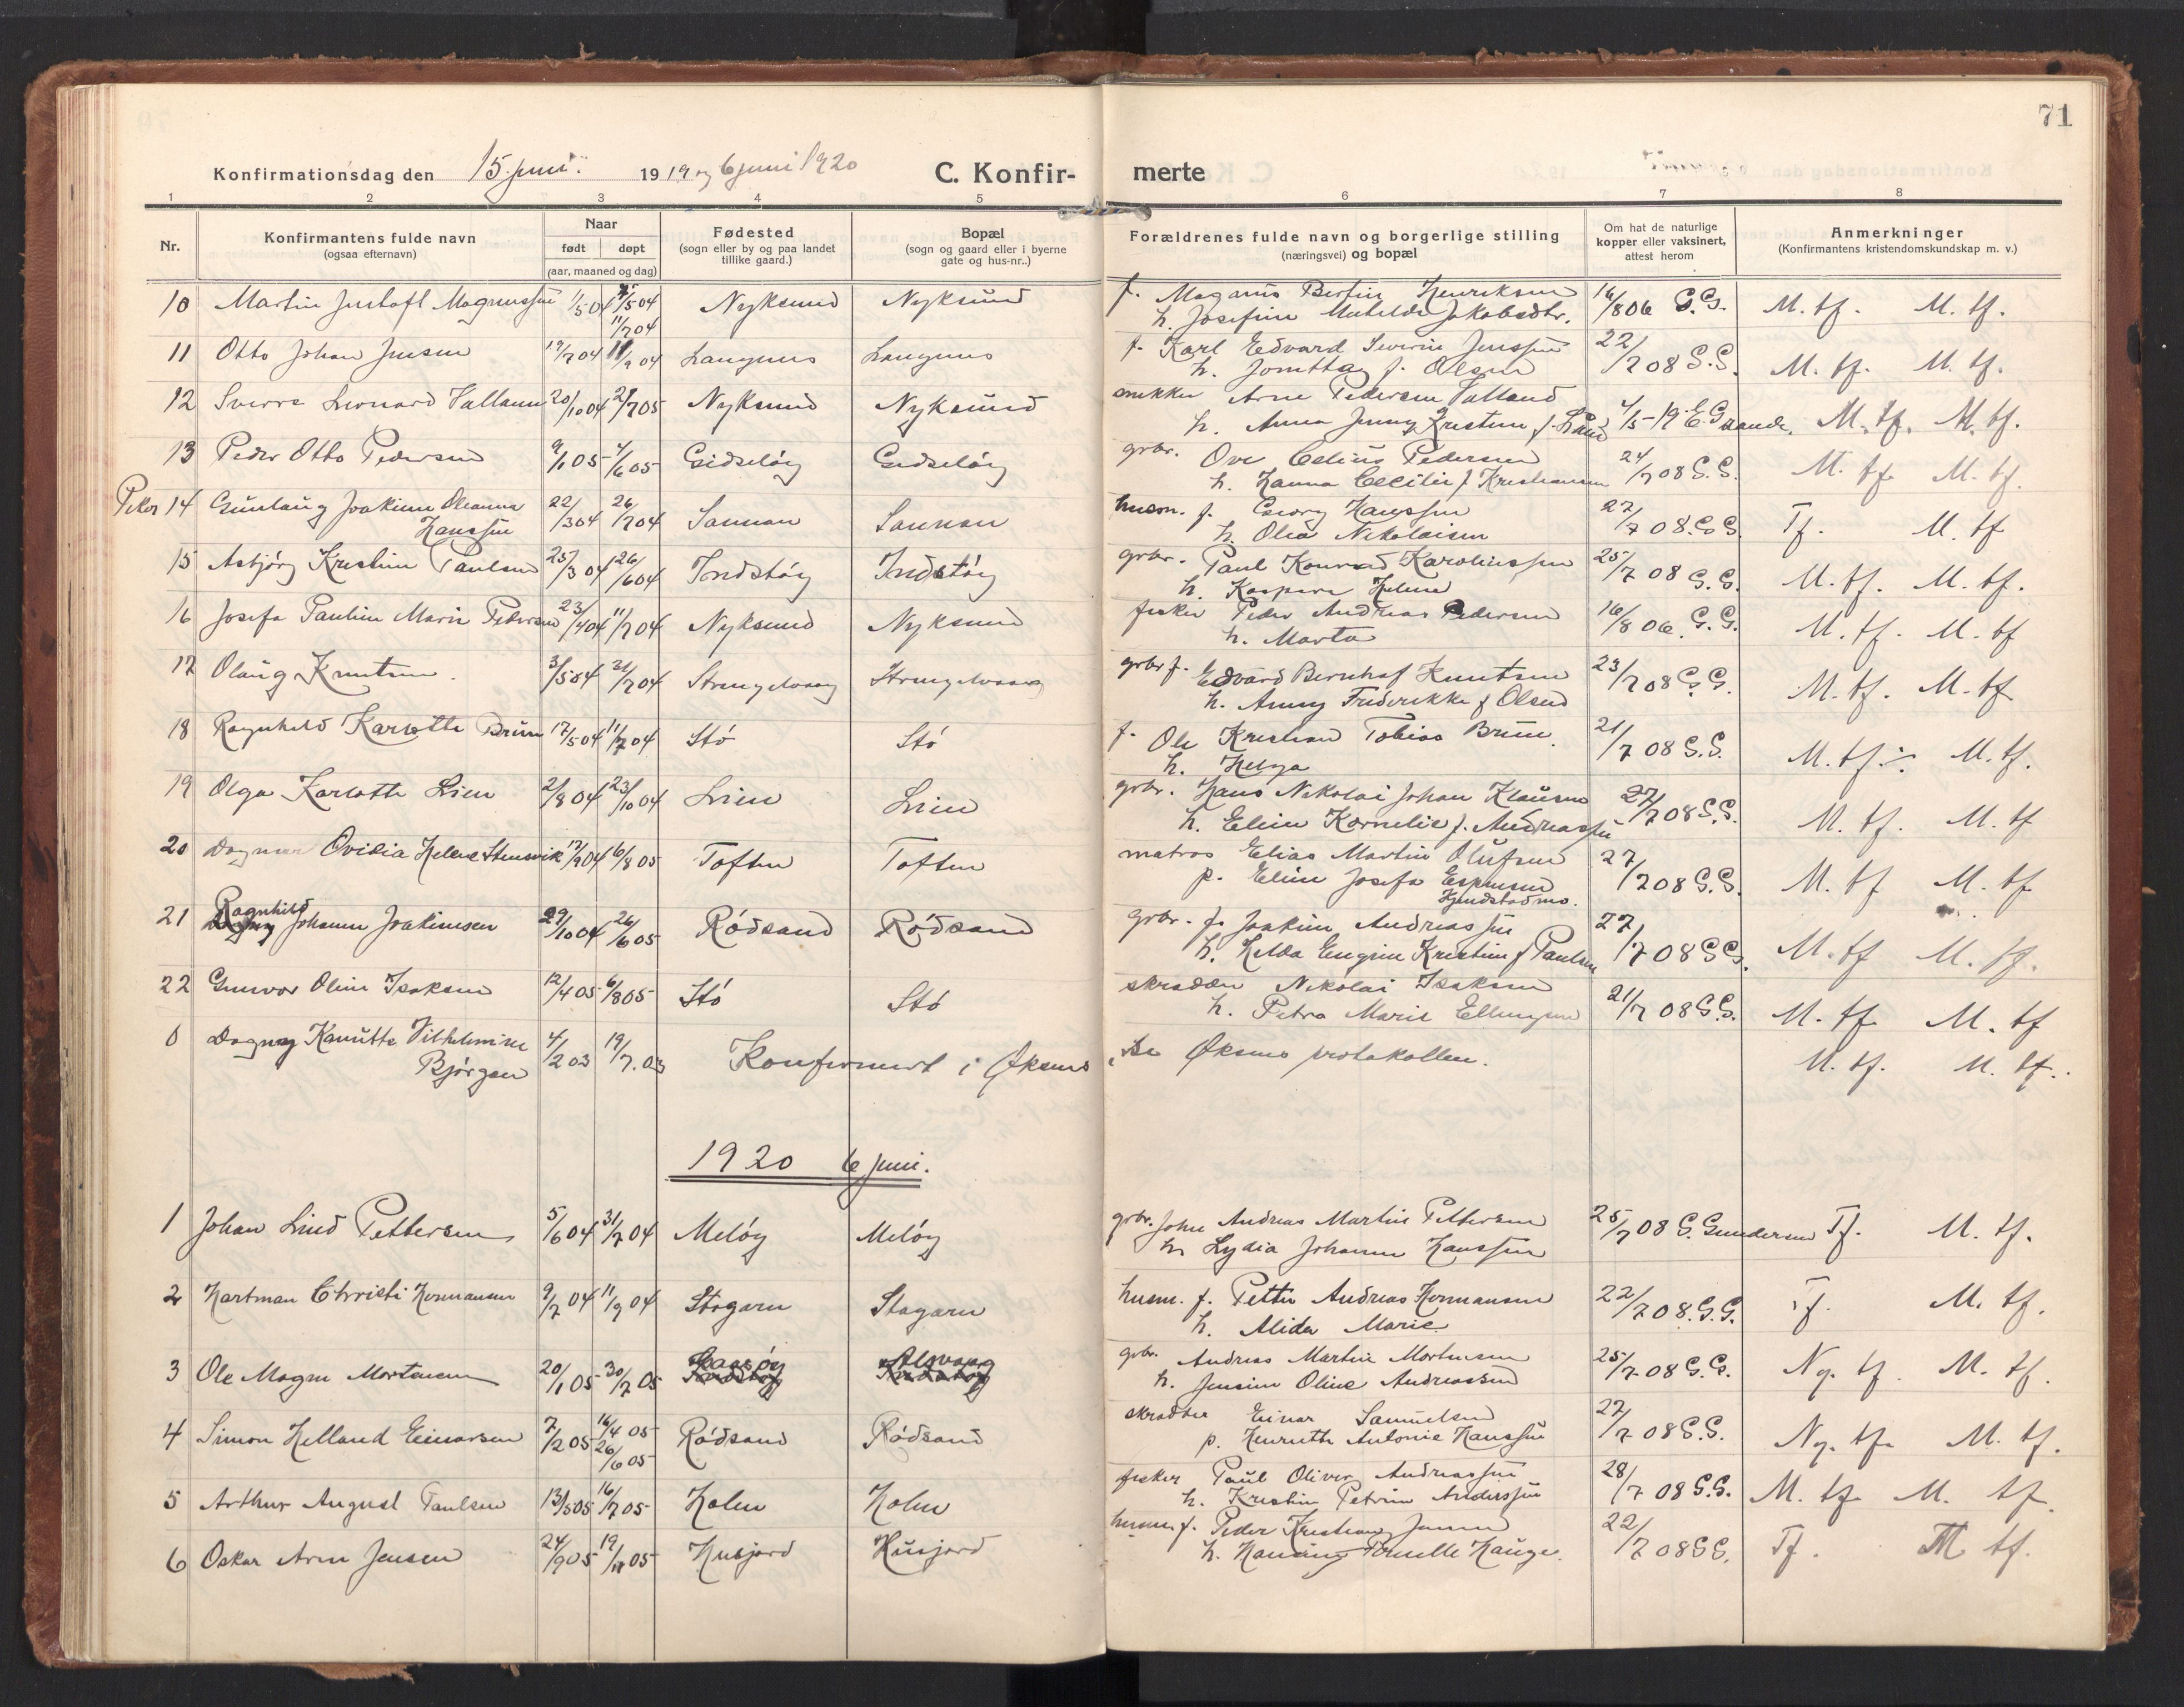 71
Konfirmationsdag den 15. juni 1919 og 6 juni 1920 C. Konfir- merte
1 2 3 4 5 6 7 8
Nr.
Konfirmantens fulde navn
(ogsaa efternavn)
Naar
født døpt
(aar, maaned og dag)
Fødested
(sogn eller by og paa landet
tillike gaard.)
Bopæl
(sogn og gaard eller i byerne
gate og hus-nr..)
Forældrenes fulde navn og borgerlige stilling
(næringsvei) og bopæl
Om hat de naturlige
kopper eller vaksinert,
attest herom
Anmerkninger
(Konfirmantens kristendomskundskap m. v.)
10 Martin Justoft Magnussen 1/5 04 /5 04 Nyksund Nyksund f. Magnus Bertin Henriksen 16/8 06 G.G. M. tf. M. tf.
11/7 04 h. Josefine Matilde Jakobsdtr.
11 Otto Johan Jensen 19/7 04 11/9 04 Langnes Langnes f. Karl Edvard Severin Jenssen 22/7 08 G.G. M. tf. M. tf.
h. f. Olsen
12 Sverre Leonard Valland 20/10 04 2/7 05 Nyksund Nyksund snekker Arne Pedersen Valland
h. Anna Jenny Kristine f. Lund 4/5-19 E. Grande. M. tf. M. tf.
13 Peder Otto Pedersen 9/1 05 4/6 05 Gidseløy Gidseløy grbr. Ove Celius Pedersen 24/7 08 G.G. M. tf. M. tf.
h. Hanna Cecilie f. Kristiansen
Piker 14 Gunlaug Joakime Oleanna 22/3 04 26/7 04 Sannan Sannan husm. f. Georg Hanssen 27/7 08 G.G. Tf. M. tf
Hanssen h. Olea Nikolaisen
15 Asbjørg Kristine Paulsen 25/3 04 26/6 04 Indstøy Indstøy grbr. Paul Konrad Karoliussen 25/7 08 G.G. M. tf. M. tf.
h. Kaspara Helene
16 Josefa Pauline Marie Pedersen 23/4 04 11/7 04 Nyksund Nyksund fisker Peder Andreas Pedersen 16/8 06. G.G. M. tf. M. tf
h. Marta
17 Olaug Knutsen. 3/5 04 31/7 04 Strengelvaag Strengelvaag grbr f. Edvard Bernhof Knutsen 23/7 08 G.G. M. tf. M. tf
h. Anny Frederikke f. Olsen
18 Ragnhild Karlotte Brun 17/5 04 11/7 04 Stø Stø f. Ole Kristian Tobias Brun. 21/7 08 G.G. M. tf. M. tf.
h. Helga
19 Olga Karlotte Lien 2/8 04 23/10 04 Lien Lien grbr. Hans Nikolai Johan Klausen 27/7 08 G.G. M. tf. M. tf
h. Eline Kornelie f. Andreassen
20 Dagmar Ovidia Helene Stensvik 17/9 04 6/8 05 Toften Toften matros Elias Martin Olufsen 27/7 08 G.G. M. tf M. tf
p. Eline Josefa Espensen
21 Ragnhild Johanne Joakimsen 29/10 04 26/6 05 Rødsand Rødsand grbr. f. Joakim Andreassen 27/7 08 G.G. M. tf M. tf.
h. Helda Engine Kristine f. Paulsen
22 Gunvor Oline Isaksen 12/4 05 6/8 05 Stø Stø skrædder Nikolai Isaksen 21/7 08 G.G. M. tf M. tf
h. Petra Marie Ellingsen
0 Dagny Kanutte Vilhelmine 4/2 03 19/7. 03 Konfirmert i Øksnes, se Øksnes protokollen. M. tf. M. tf.
Bjørgan
1920 6 juni.
1 Johan Lind Pettersen 5/6 04 31/7 04 Meløy Meløy grbr. John Andreas Martin Pettersen 25/7 08 G. Gundersen Tf. M. tf.
h. Lydia Johanne Hanssen
2 Hartman Christi Hermansen 9/7 04 11/9 04 Stegarn Stegarn husm. f. Petter Andreas Hermansen 22/7 08. G.G. Tf. M. tf.
h. Alida Marie
3 Ole Magne Mortensen 20/1 05 30/7 05 Alsvaag grbr. Andreas Martin Mortensen 25/7-08 G.G. Ng. tf. M. tf.
h. Jensine Oline Andreassen
4 Simon Helland Einarsen 7/2 05 16/4 05 Rødsand Rødsand skrædder Einar Samuelsen 27/7 08 G.G. Ng. tf. M. tf.
26/6 05 p. Henrutte Antonie Hanssen
5 Arthur August Paulsen 13/5 05 16/7 05 Holm Holm fisker Paul Oliver Andreassen 28/7 08 G.G. M. tf M. tf.
h. Kristine Petrine Anderssen
6 Oskar Arne Jensen 24/9 05 19/11 05 Husjord Husjord husm f. Peder Kristian Jensen 22/7 08 G.G. Tf. M tf.
h. Hansine Pernelle Hauge.